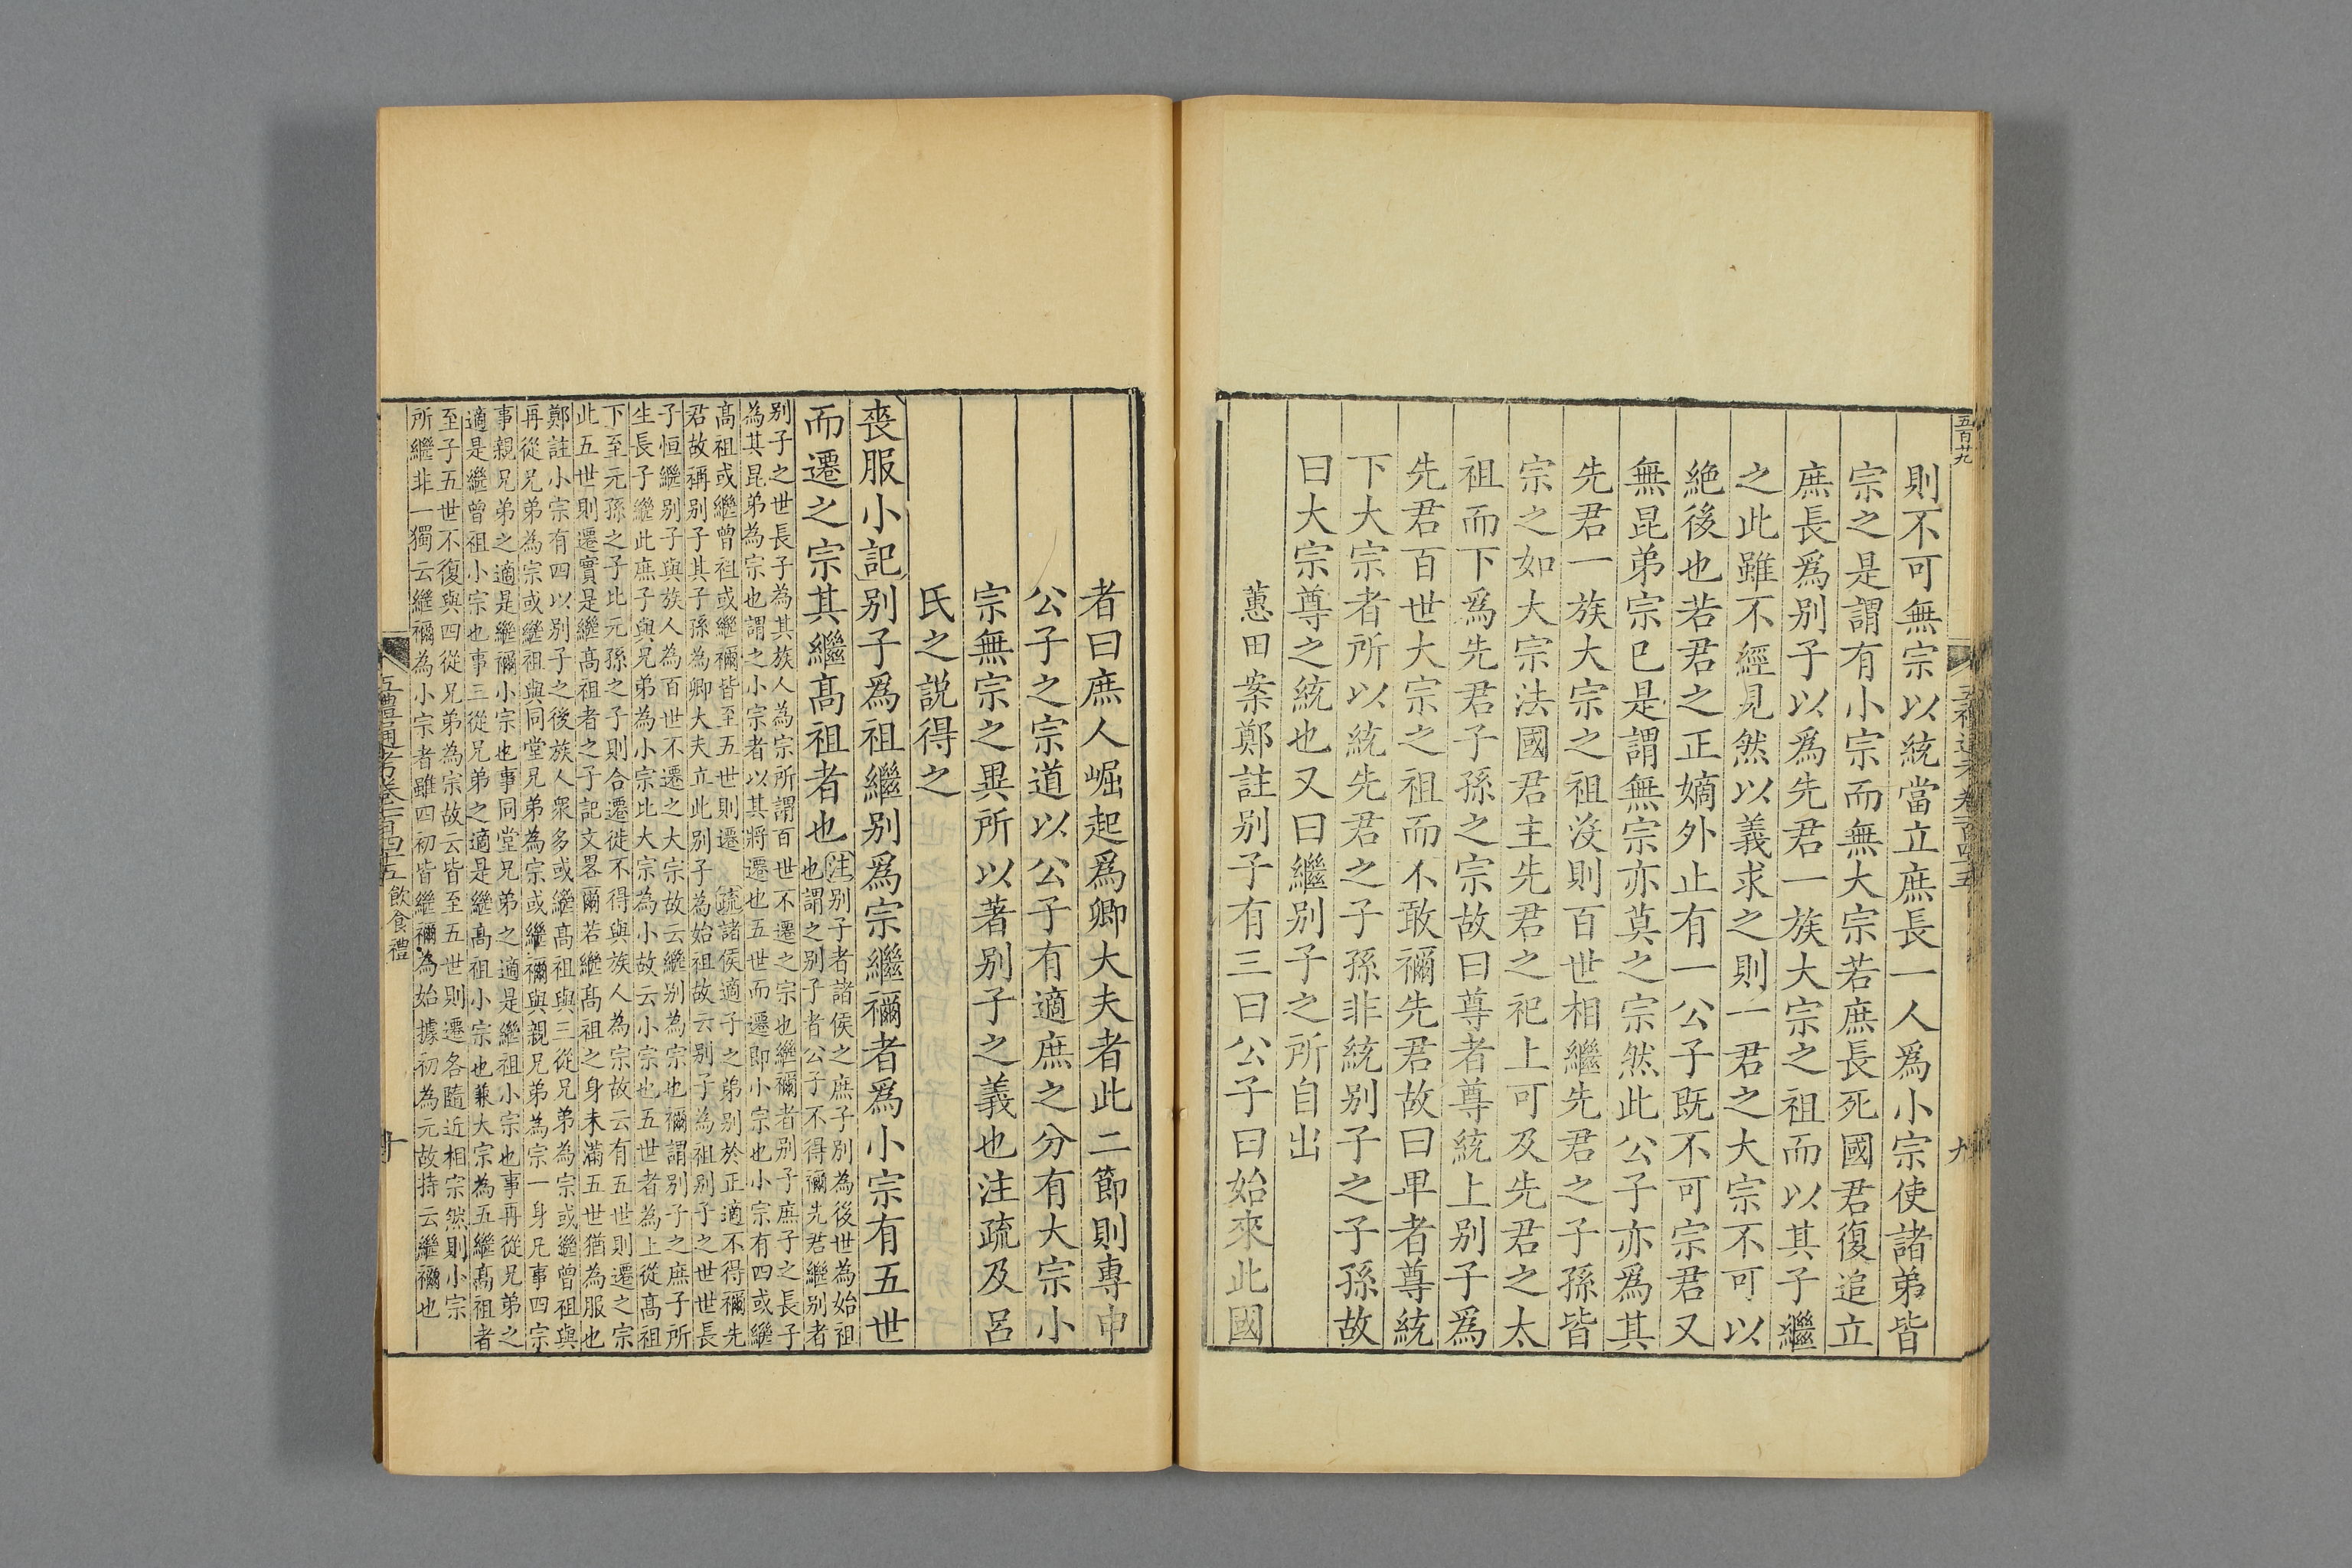 五百廿九
則不可無宗以統當立庶長一人爲小宗使諸弟皆
宗之是謂有小宗而無大宗若庶長死國君復追立
庶長爲別子以爲先君一族大宗之祖而以其子繼
之此雖不經見然以義求之則一君之大宗不可以
絶後也若君之正嫡外止有一公子既不可宗君又
無昆弟宗已是謂無宗亦莫之宗然此公子亦爲其
先君一族大宗之祖沒則百世相繼先君之子孫皆
宗之如大宗法國君主先君之祀上可及先君之太
祖而下爲先君子孫之宗故曰尊者尊統上別子爲
先君百世大宗之祖而不敢禰先君故曰卑者尊統
下大宗者所以統先君之子孫非統別子之子孫故
曰大宗尊之統也又曰繼別子之所自出
蕙田案鄭註別子有三曰公子曰始來此國
九
者曰庶人崛起爲卿大夫者此二節則專申
公子之宗道以公子有適庶之分有大宗小
宗無宗之異所以著別子之義也注疏及呂
氏之説得之
喪服小記別子爲祖繼別爲宗繼禰者爲小宗有五世
而遷之宗其繼髙祖者也
注別子者諸侯之庶子別為後世為始祖
也謂之別子者公子不得禰先君繼別者
別子之世長子為其族人為宗所謂百世不遷之宗也繼禰者別子庶子之長子
為其昆弟為宗也謂之小宗者以其將遷也五世而遷即小宗也小宗有四或繼
髙祖或繼曾祖或繼禰皆至五世則遷 疏諸侯適子之弟別於正適不得禰先
君故稱別子其子孫為卿大夫立此別子為始祖故云別子為祖別子之世世長
子恒繼別子與族人為百世不遷之大宗故云繼別為宗也禰謂別子之庶子所
生長子繼此庶子與兄弟為小宗比大宗為小故云小宗也五世者為上從髙祖
下至元孫之子比元孫之子則合遷徙不得與族人為宗故云有五世則遷之宗
此五世則遷實是繼髙祖者之子記文畧爾若繼髙祖之身未滿五世猶為服也
鄭註小宗有四以別子之後族人衆多或繼髙祖與三從兄弟為宗或繼曾祖與
再從兄弟為宗或繼祖與同堂兄弟為宗或繼禰與親兄弟為宗一身凡事四宗
事親兄弟之適是繼禰小宗也事同堂兄弟之適是繼祖小宗也事再從兄弟之
適是繼曾祖小宗也事三從兄弟之適是繼髙祖小宗也兼大宗為五繼髙祖者
至子五世不復與四從兄弟為宗故云皆至五世則遷各隨近相宗然則小宗
所繼非一獨云繼禰為小宗者雖四初皆繼禰為始據初為元故持云繼禰也
五禮通考卷一百四十五 飲食禮
十